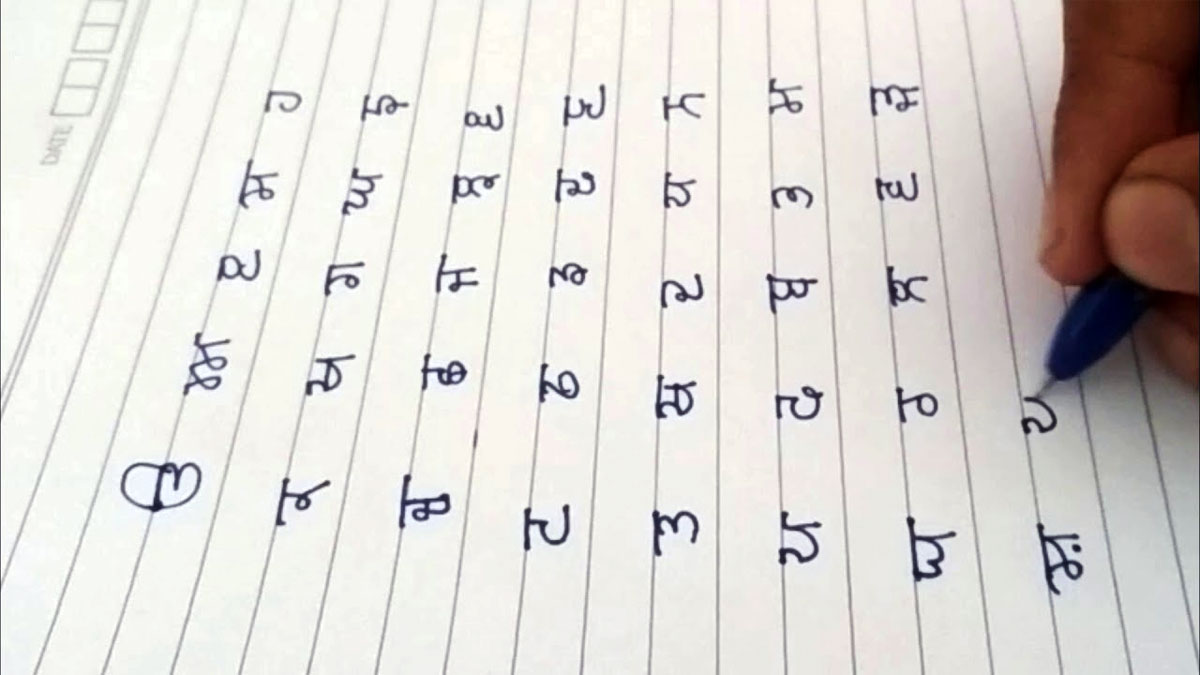 DATE
ੳ ਅ ੲ ਸ ਹ
ਕ ਖ ਗ ਘ ਙ
ਚ ਛ ਜ ਝ ਞ
ਟ ਠ ਡ ਢ ਣ
ਤ ਥ ਦ ਧ ਨ
ਪ ਫ ਬ ਭ ਮ
ਯ ਰ ਲ ਵ ੜ
ਸ਼